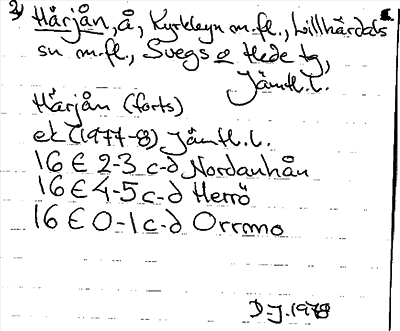 2) Härjån, å, Kyrkbyn m.fl., Lillhärdals
sn m.fl., Svegs o Hede tg,
Jämtl.l.
Härjån (forts)
ek (1977-8) Jämtl.l.
16 E 2-3 c-d Nordanhån
16 E 4-5 c-d Herrö
16 E 0-1 c-d Orrmo
D-J. 1978